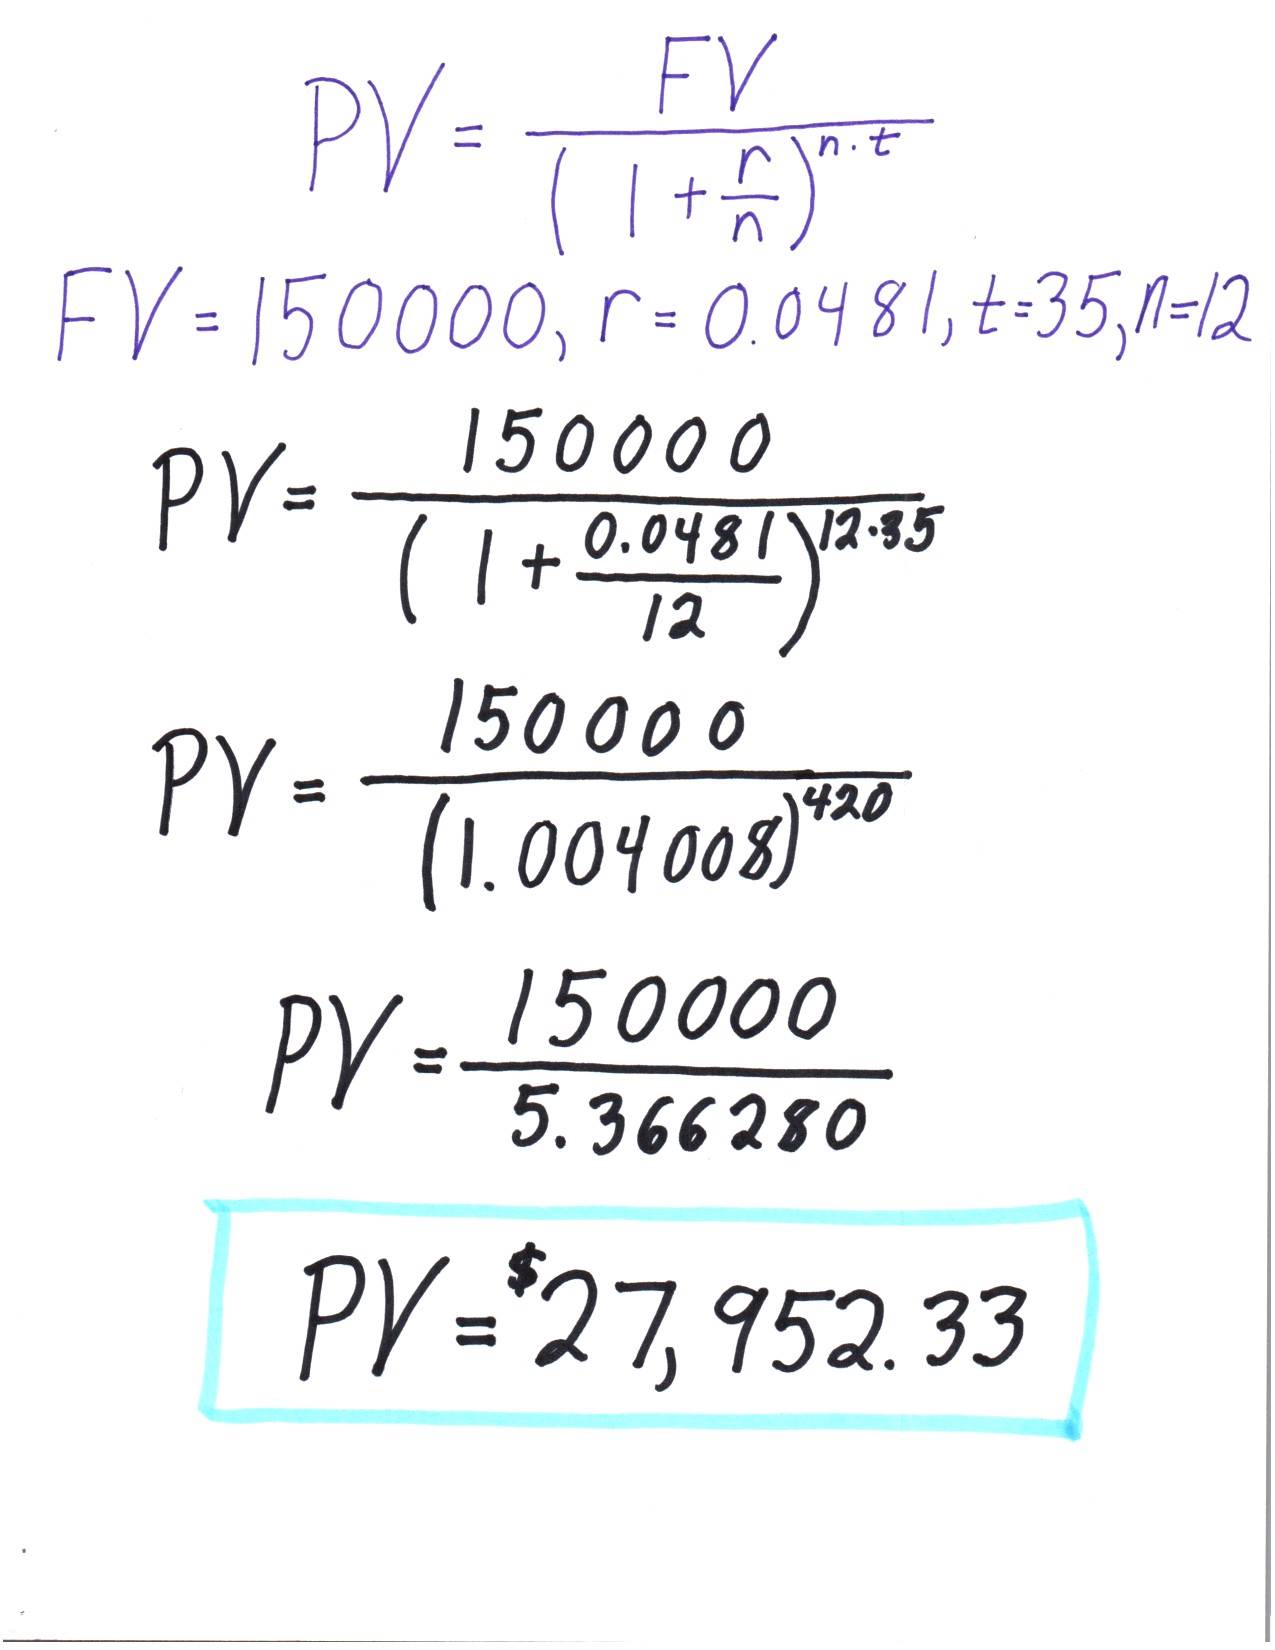 PV = FV / (1 + r/n)^n·t
FV = 150000, r = 0.0481, t=35, n=12
PV = 150000 / (1 + 0.0481/12)^12·35
PV = 150000 / (1.004008)^420
PV = 150000 / 5.366280
PV = $27,952.33